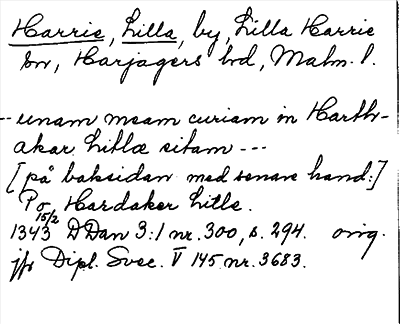 Harrie, Lilla, by, Lilla Harrie
sn, Harjagers hd, Malm. l.
-- unam meam curiam in Harth-
akar litlæ sitam ---
[på baksidan med senare hand:]
Po Hardaker litle.
1343 15/2 DDan 3:1 nr. 300, s. 294. orig.
jfr Dipl. Svec. V 145 nr. 3683.